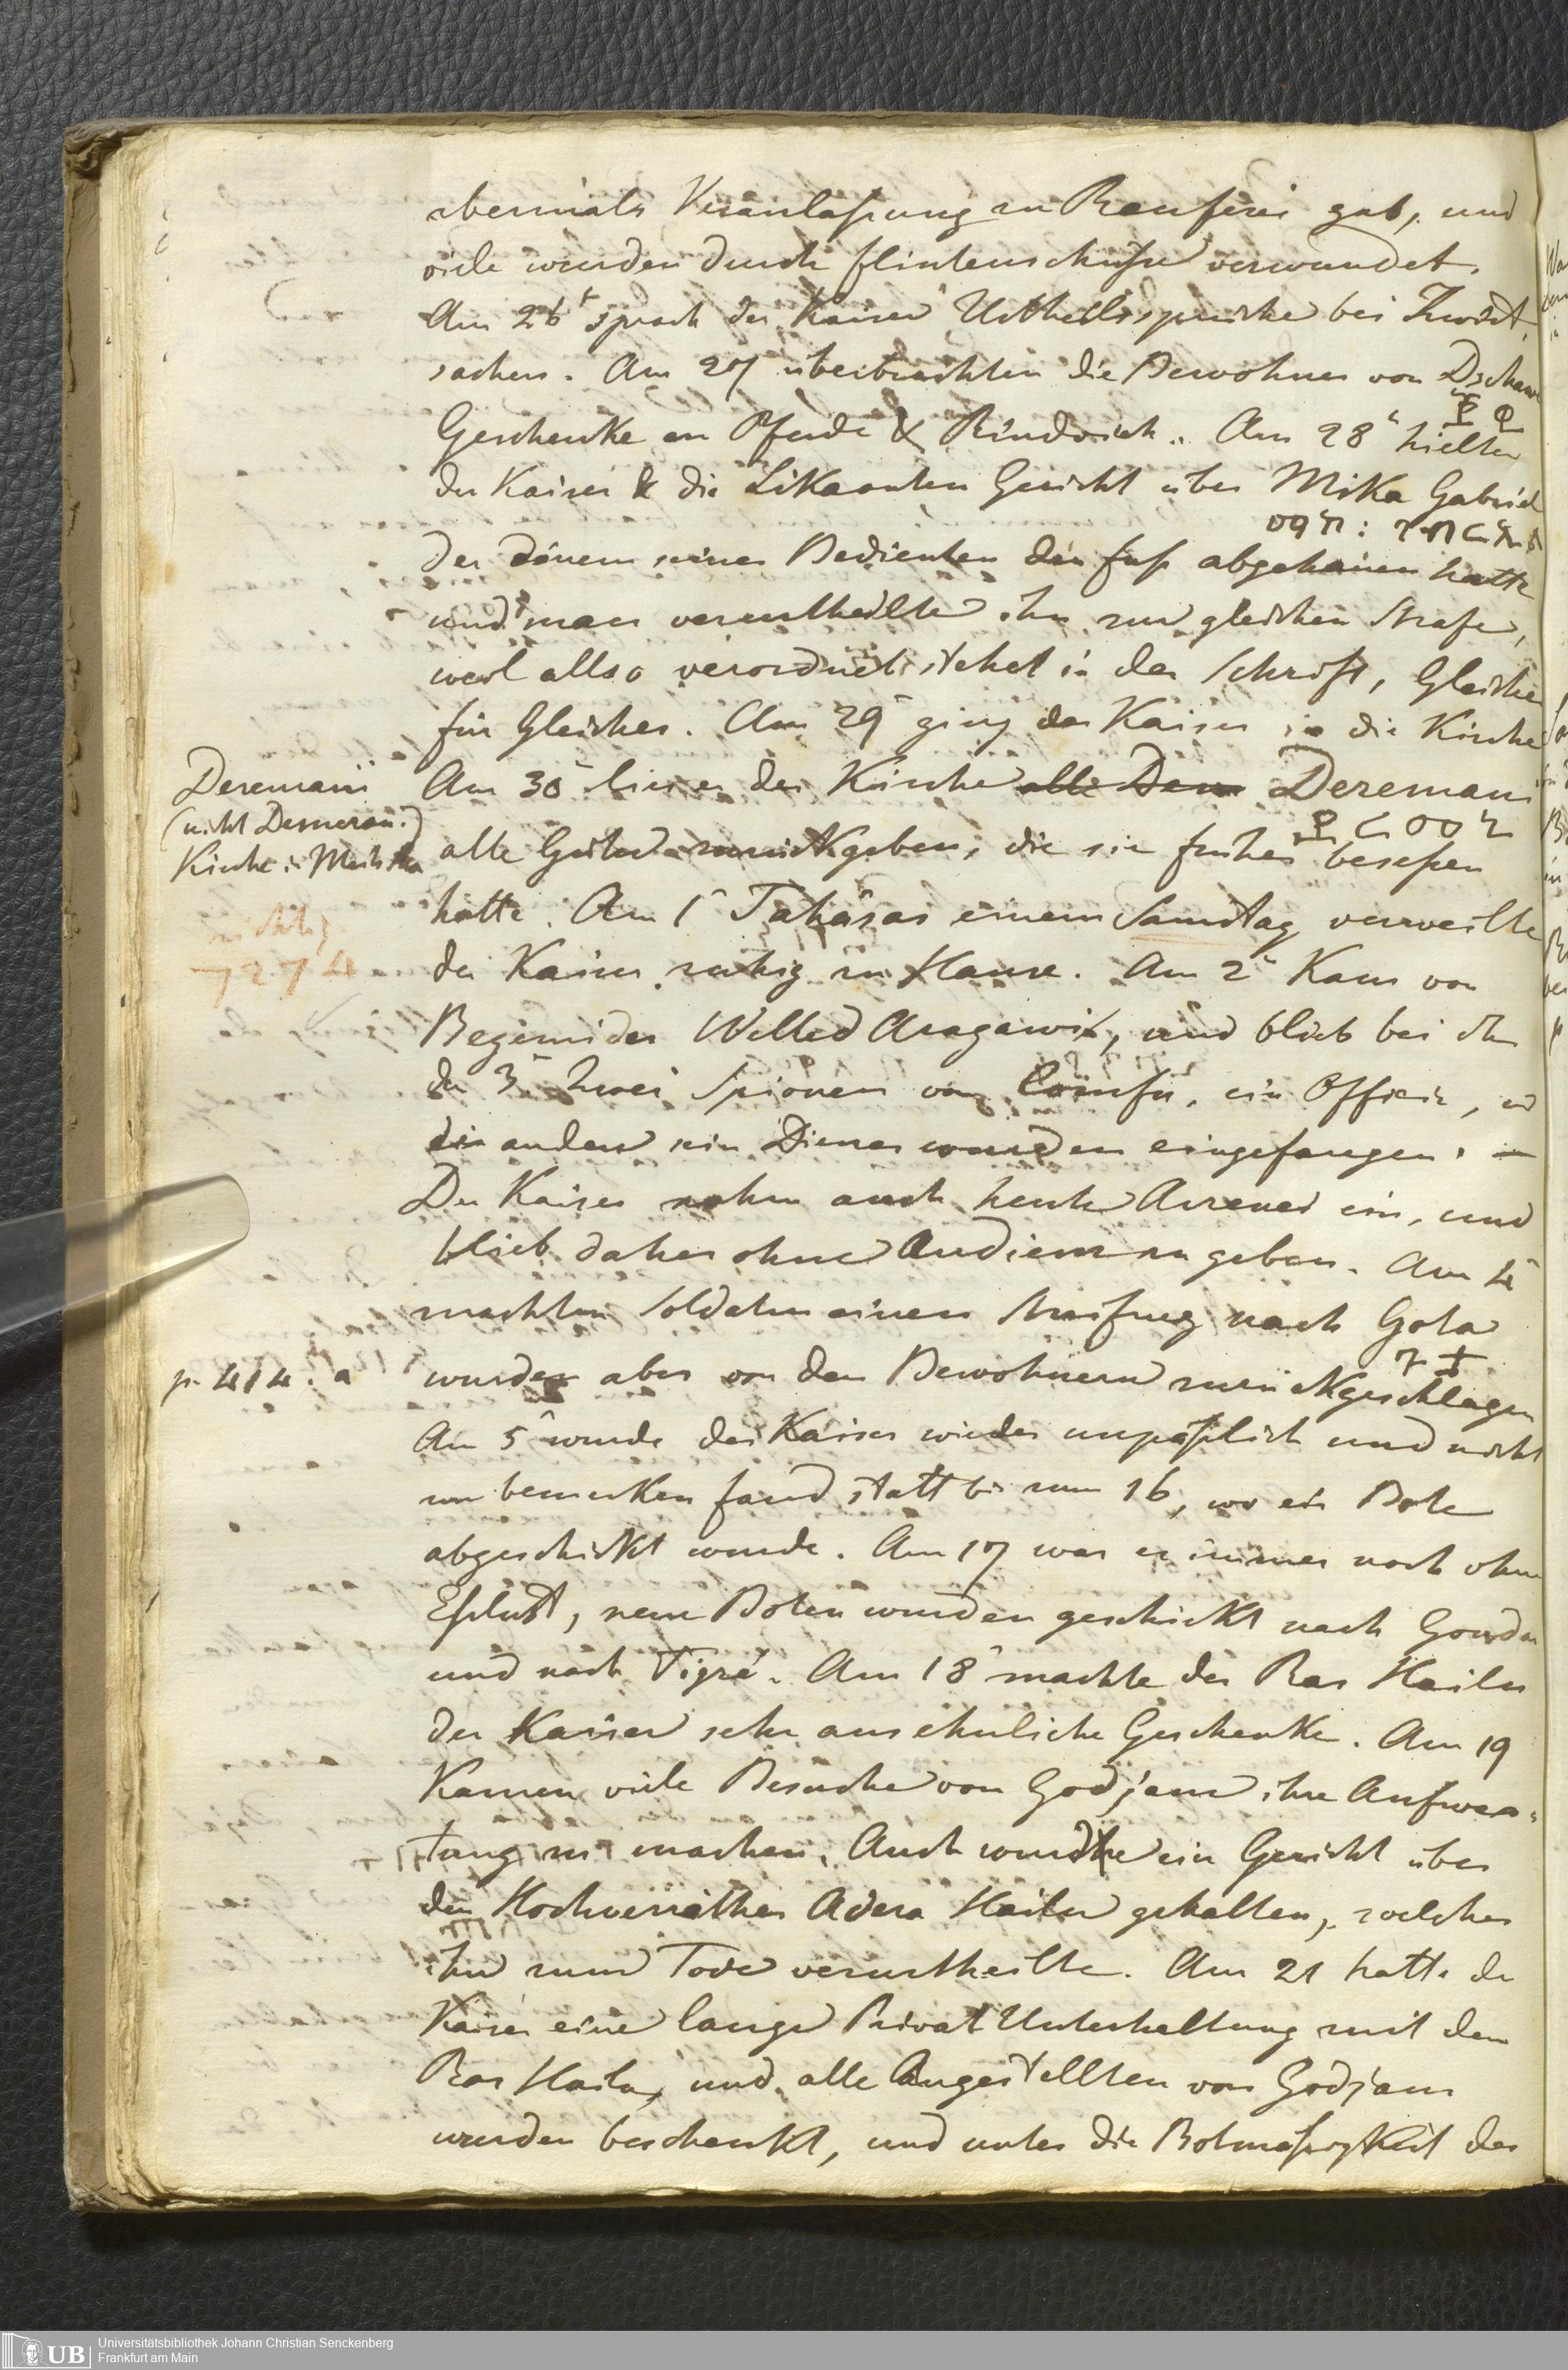 abermals Veranlaßung zu Rauferei gab, und
viele wurden durch flintenschüße verwundet.
Am 26t sprach der Kaiser Urtheilssprüche bei Zwist
sachen. Am 27 überbrachten die Bewohner von Dscham
Geschenke an Pferde & Rindvieh. Am 28 hielten
der Kaiser & die Likaonten Gericht über Mika Gabriel
der einem seiner Bedienten den fuß abgehauen hatte
und man verurtheilte ihn zur gleichen Strafe,
weil allso verordnet stehet in der Schrift, Gleiche
für Gleiches. Am 29 ging der Kaiser in die Kirche
Deremani
(nicht Demerau.)
Kirche in
Am 30 lies er der Kirche alle Dem Deremani
ደረመኒ
alle Güter zurückgeben, die sie früher beseßen
hatte. Am 1 Tahâsas einem Samstag verweilte
richtig
7274
der Kaiser ruhig zu Hause. Am 2 Kam von
Begemider Welled Aragawi, und blieb bei ihm
den 3 zwei Spionen von Comfu, ein Officir, u
ein anderer sein Diener wurden eingefangen. –
Der Kaiser nahm auch heute Arzenei ein, und
blieb daher ohne Audienz zu geben. Am 4
machten Soldaten einen Streifzug nach Gota
ጎታ
p. 414. a
wurden aber von den Bewohnern zurückgeschlagen
Am 5 wurde der Kaiser wieder unpäßlich und nichts
zu bemerken fand statt bis zum 16, wo ein Bote
abgeschickt wurde. Am 17 war er immer noch ohne
Eßlust, neue Boten wurden geschickt nach Gondar
und nach Tigré. Am 18 machte der Ras Hailu
der Kaiser sehr ansehnliche Geschenke. Am 19
Kamen viele Besuche von Godjam ihre Aufwar-
tung zu machen. Auch wurde ein Gericht über
den Hochverräther Adera Hailu gehalten, welches
ihn zum Tode verurtheilte. Am 21 hatte der
Kaiser eine lange Privat Unterhaltung mit dem
Ras Hailu, und alle Angestellten von Godjam
wurden beschenkt, und unter die Botmäßigkeit des
Universitätsbibliothek Johann Christian Senckenberg
Frankfurt am Main
UB